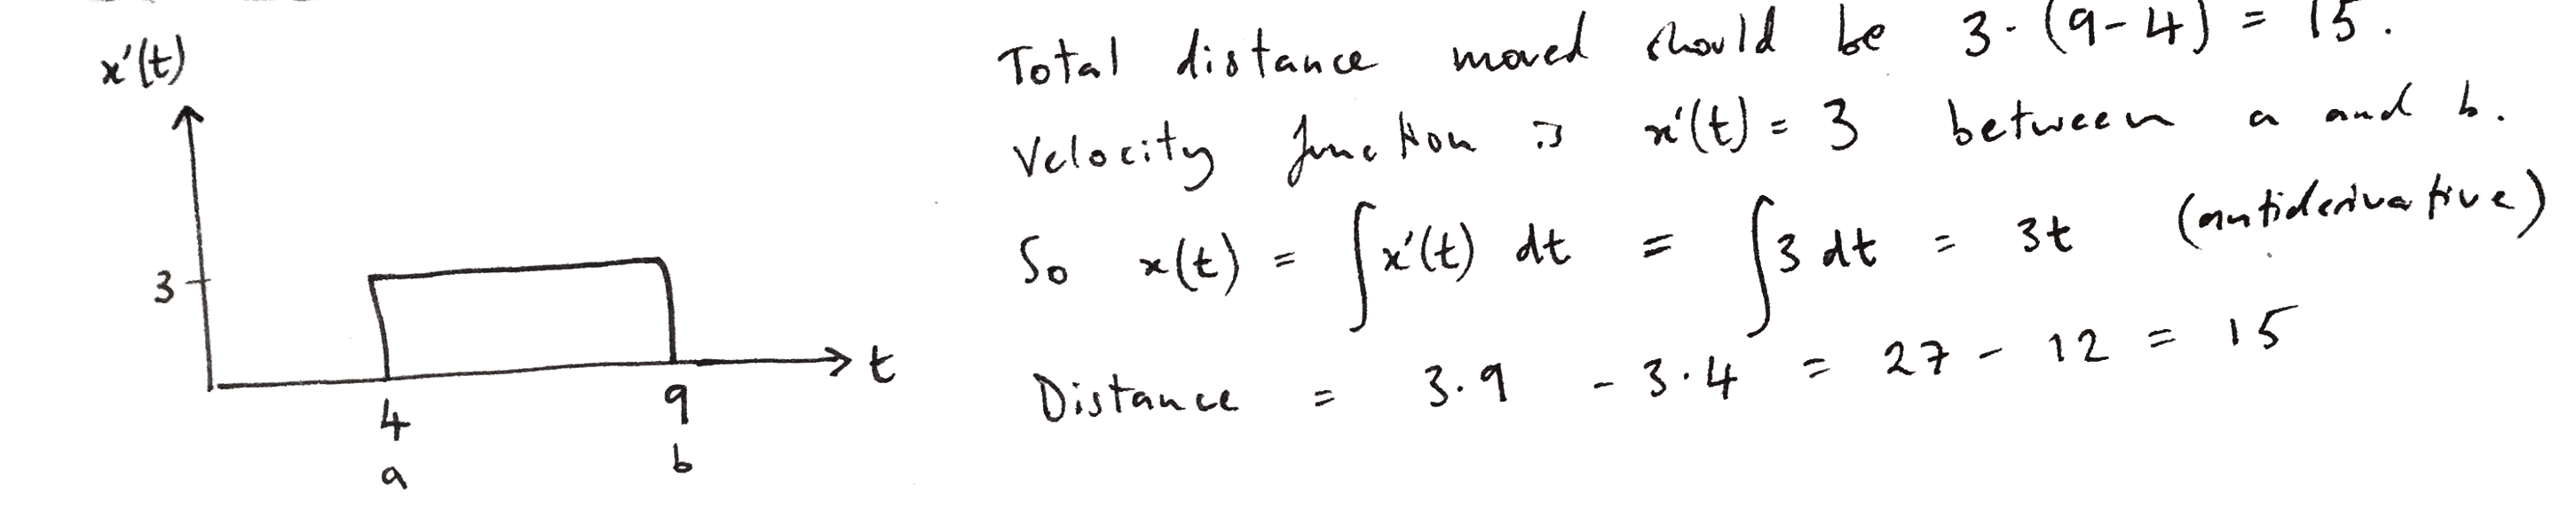 x'(t)
3
t
4
9
a
b
Total distance moved should be 3·(9-4) = 15.
Velocity function is x'(t) = 3 between a and b.
So x(t) = ∫x'(t) dt = ∫3 dt = 3t (antiderivative)
Distance = 3·9 - 3·4 = 27 - 12 = 15